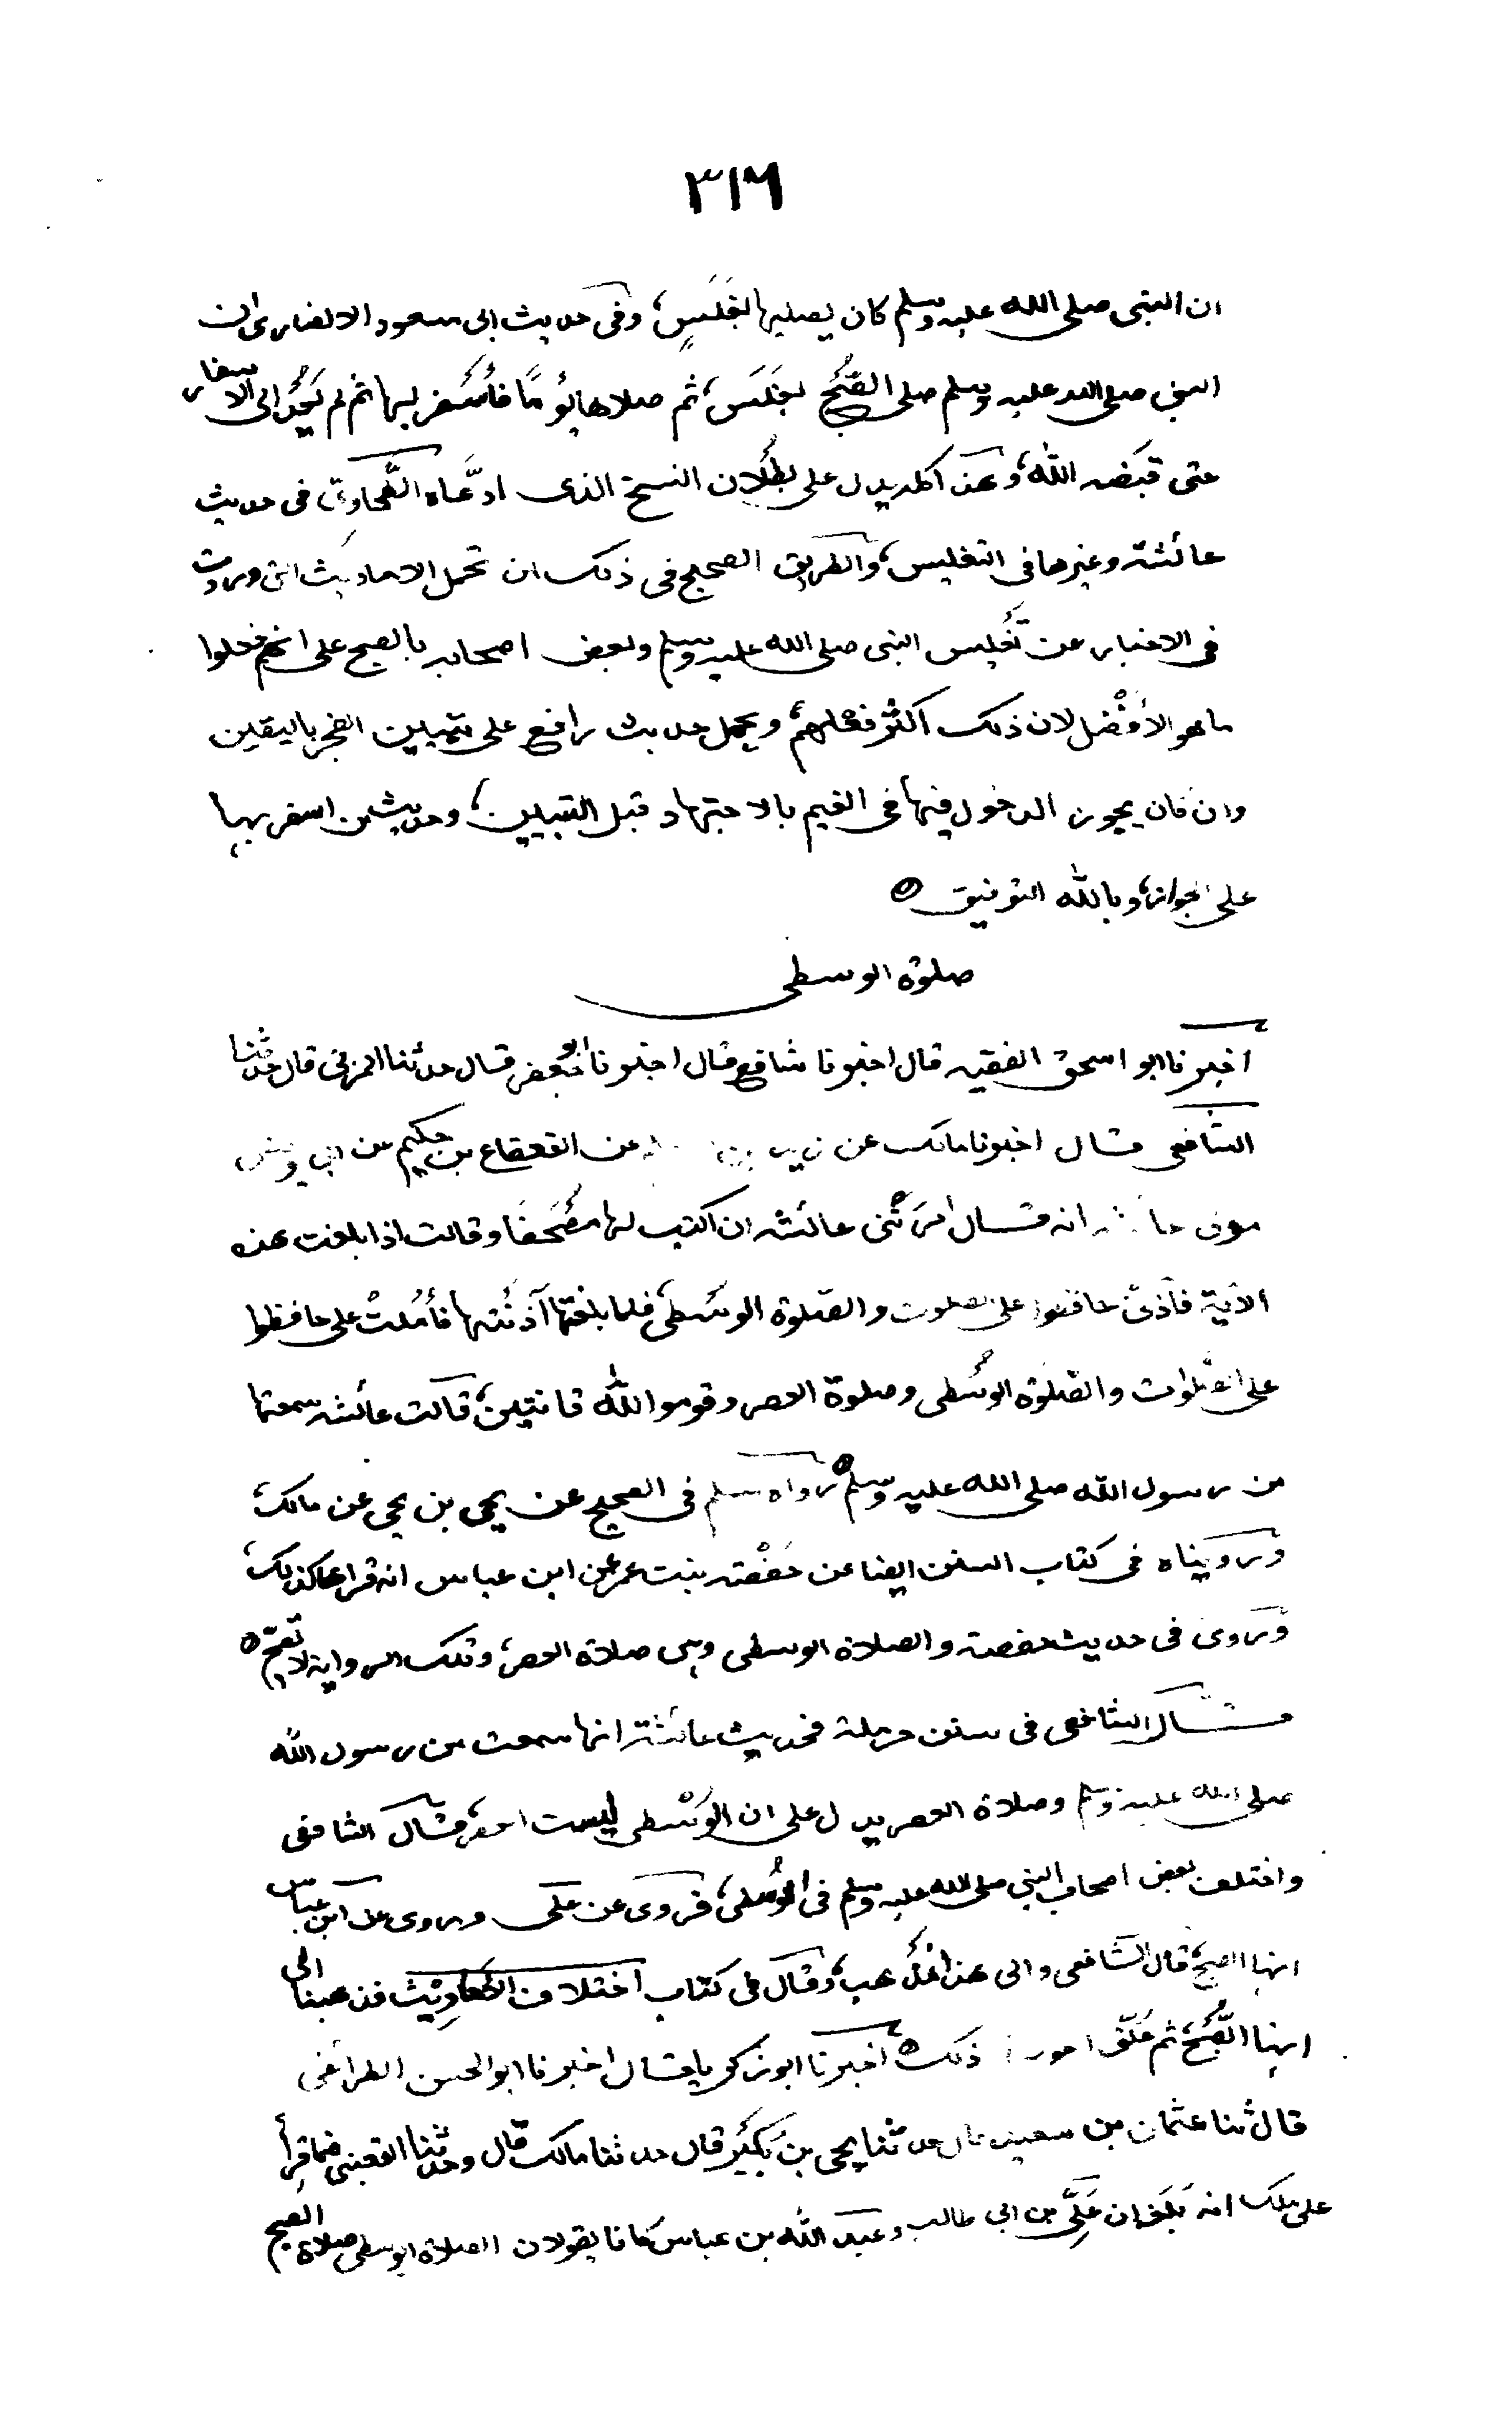 ٣١٦
ان النبى صلى الله عليه وسلم كان يصليها بغَلَسٍ، وفى حديث ابى مسعود الانصارى ان
النبى صلى الله عليه وسلم صلى الصُّبح بغَلَس، ثم صلاها يومًا فأسفر بها ثم لم يَعُد الى الاسفار
حتى قبَضَه الله، وهذا كله يدل على بطلان النسخ الذى ادَّعاه الطَّحاوى فى حديث
عائشة وغيرها فى التغليس، والطريق الصحيح فى ذلك ان تحمل الاحاديث التى وردت
فى الاخبار عن تغليس النبى صلى الله عليه وسلم وبعض اصحابه بالصبح على انهم فعلوا
ما هو الأفْضل لان ذلك اكثر فعلهم، ويحمل حديث رافع على تبيين الفجر باليقين
وان كان يجوز الدخول فيها فى الغيم بالاجتهاد قبل التبيين، وحديث من اسفر بها
على الجواز، وبالله التوفيق ٥
صلوة الوسطى
اخبرنا ابو اسحق الفقيه قال اخبرنا شافع قال اخبرنا ابو جعفر قال حدثنا المزنى قال حدثنا
الشافعى قال اخبرنا مالك عن زيد بن عن القعقاع بن حكيم عن ابى يونس
مولى عائشه انه قال امرَتْنى عائشه ان اكتب لها مُصْحَفًا وقالت اذا بلغت هذه
الآية فآذنّى حافظوا على الصلوت والصلوة الوسطى، فلما بلغتها آذنُتها فأملَتْ على حافظوا
على الصَّلوات والصلوة الوُسْطى وصلوة العصر وقوموا لله قانتين، قالت عائشه سمعتها
من رسول الله صلى الله عليه وسلم ٥ رواه مسلم فى الصحيح عن يحى بن يحى عن مالك،
ورويناه فى كتاب السنن ايضا عن حَفْصَه بنت عمر عن ابن عباس انه قرأها كذلك،
وروى فى حديث حفصة والصلاة الوسطى وهى صلاة العصر، وتلك الرواية لا تصحّ ٥
قال الشافعى فى سنن حرملة فحديث عائشة انها سمعت من رسول الله
صلى الله عليه وسلم وصلاة العصر يدل على ان الوُسْطى ليست العصر، قال الشافعى
واختلف بعض اصحاب النبي صلى الله عليه وسلم فى الوُسْطى، فروى عن على وروى عن ابن عباس
انها الصبح، قال الشافعى والى هذا نذهب، وقال فى كتاب اختلاف الأحادِيْث فذهبنا الى
انها الصُّبْح، ثم علّق ذلك ٥ اخبرنا ابو زكريا قال اخبرنا ابو الحسن الطرائفى
قال ثنا عثمان بن سعيد قال حدثنا يحى بن بُكَيْر قال حدثنا مالك قال وحدثنا القعنبى فيما قرأ
على مالك انه بَلَغه ان عَلَّى بن ابى طالب وعبد الله بن عباس كانا يقولان الصلاة الوسطى صلاة الصبح